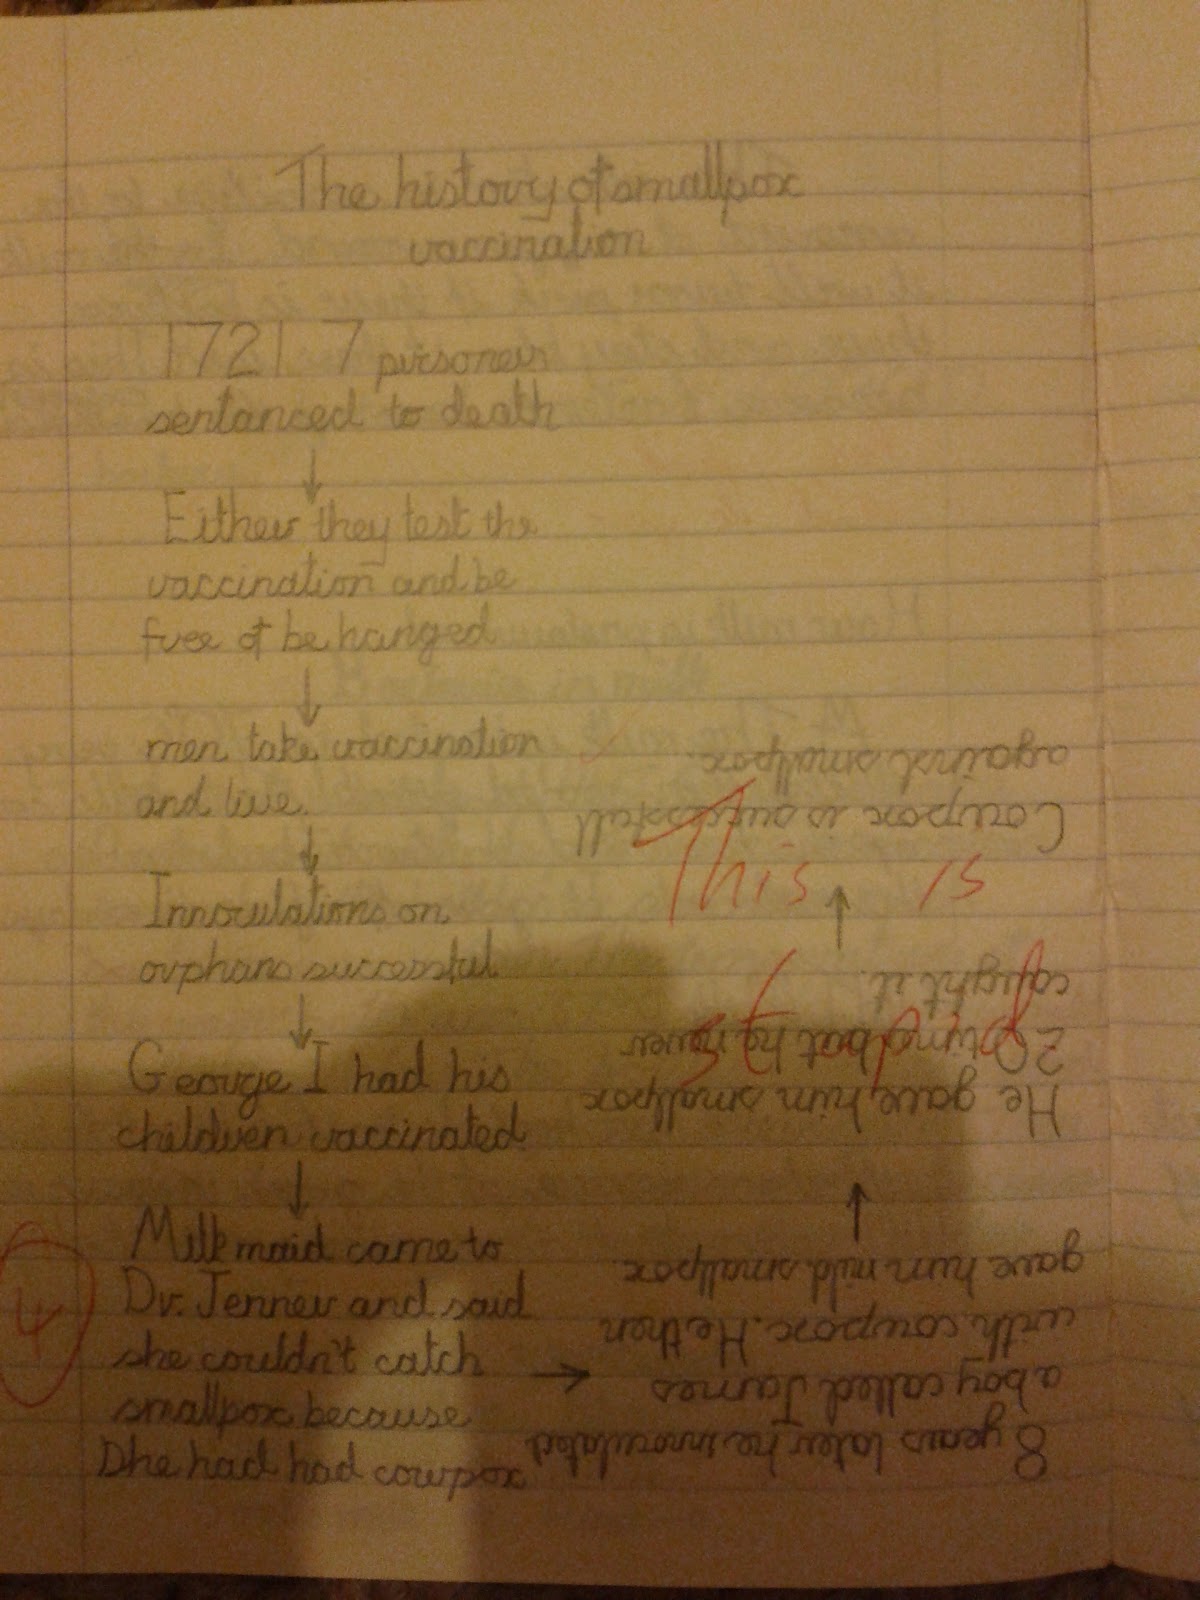 The history of smallpox
vaccination
1721 7 pirsoners
sentanced to death
Either they test the
vaccination and be
free of be hanged
men take vaccination
and live.
Innoculations on
orphans successful
George I had his
children vaccinated
Milkmaid came to
Dr. Jenner and said
she couldn't catch
smallpox because
Dhe had had cowpox
8 years later he innoculated
a boy called James
with cowpox. He then
gave him mild smallpox.
He gave him smallpox
20 times but he never
caught it.
Cowpox is sucessfull
against smallpox.
This is
stupid
4